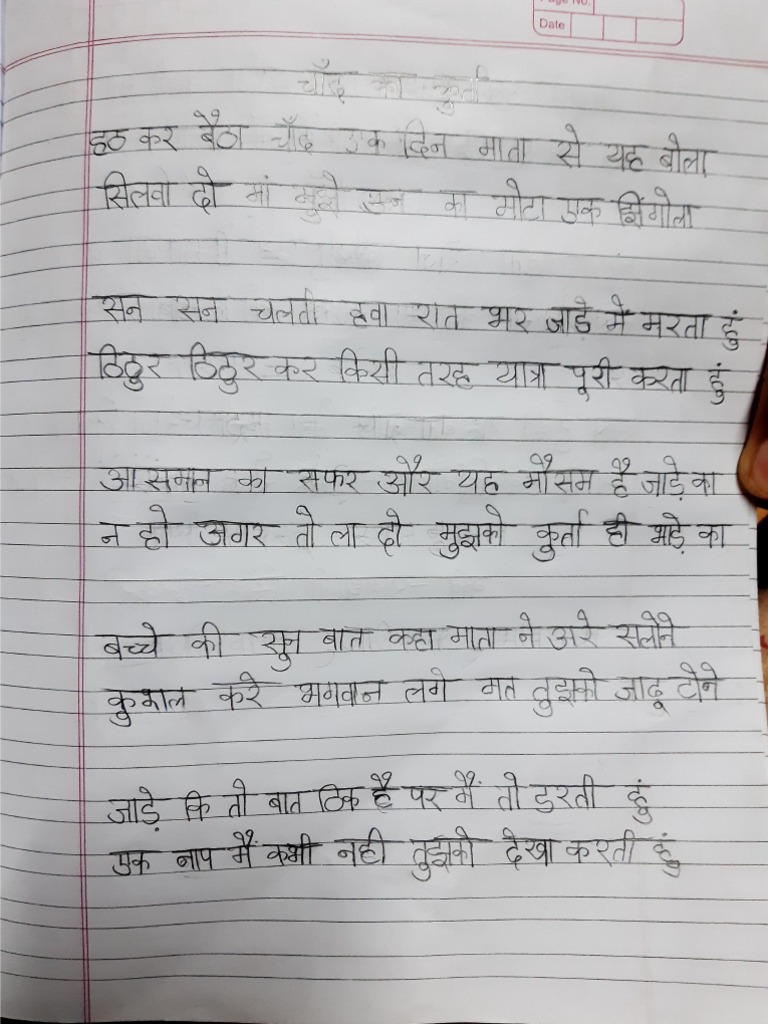 Page No.
Date
चाँद का कुर्ता
हठ कर बैठा चाँद एक दिन माता से यह बोला
सिलवा दो मां मुझे उन का मोटा एक झिंगोला
सन सन चलती हवा रात भर जाड़े में मरता हुं
ठिठुर ठिठुर कर किसी तरह यात्रा पूरी करता हुं
आसमान का सफर और यह मौसम है जाड़े का
न हो अगर तो ला दो मुझको कुर्ता ही भाड़े का
बच्चे की सुन बात कहा माता ने अरे सलोने
कुशल करे भगवान लगे मत तुझको जादू टोने
जाड़े कि तो बात ठिक है पर मैं तो डरती हुं
एक नाप मैं कभी नही तुझको देखा करती हुं